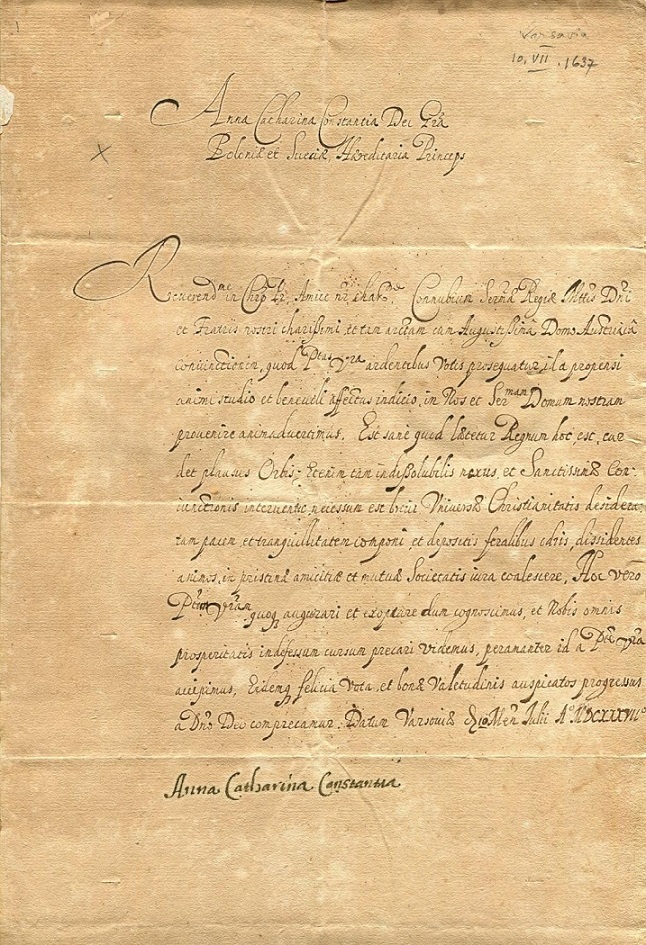 Varsavia
10. VII. 1637
Anna Catharina Constantia Dei Grã
Poloniæ et Sueciæ, Hæreditaria Princeps
Reuerend^me in Chrõ , Amice nr̃ char^e. Connubium Serm̃æ Regiæ Mttis Dñi
et Fratris nostri charissimi, et tam arctam cum Augustissimâ Domo Austriacâ
coniunctionem, quod Ptas Vra ardentibus Votis prosequatur, id a propensi
animi studio et beneuoli affectus indicio, in Nos et Ser^mam Domum nostram
prouenire animaduertimus. Est sanè quod lætetur Regnum hoc, est, cur
det plausus Orbis; Etenim tàm indissolubilis nexus, et Sanctissimæ Con-
iunctionis interuentu, necessum est breui Vniuersæ Christianitatis desidera-
tam pacem, et tranquillitatem componi, et depositis feralibus odiis, dissidentes
animos, in pristinæ amicitiæ et mutuæ Societatis iura coalescere. Hoc Vero
Ptem Vram quoq augurari et exoptare dum cognoscimus, et Nobis omnis
prosperitatis indefessum cursum precari Videmus, peramanter id a Pte Vra
accipimus, Eidemq felicia Vota, et bonæ Valetudinis auspicatos progressus
a Dño Deo comprecamur. Datum Varsouiæ Men. Iulii A° MDCXXXVII°
Anna Catharina Constantia